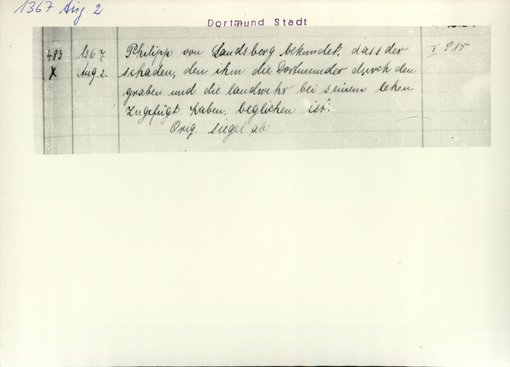 1367 Aug. 2
Dortmund Stadt
483 1367 Philipp von Landsberg bekundet, dass der I 815
X Aug. 2. schaden, den ihm die Dortmunder durch den
graben und die landwehr bei seinem lehen
zugefügt haben, beglichen ist.
Orig. siegel ab